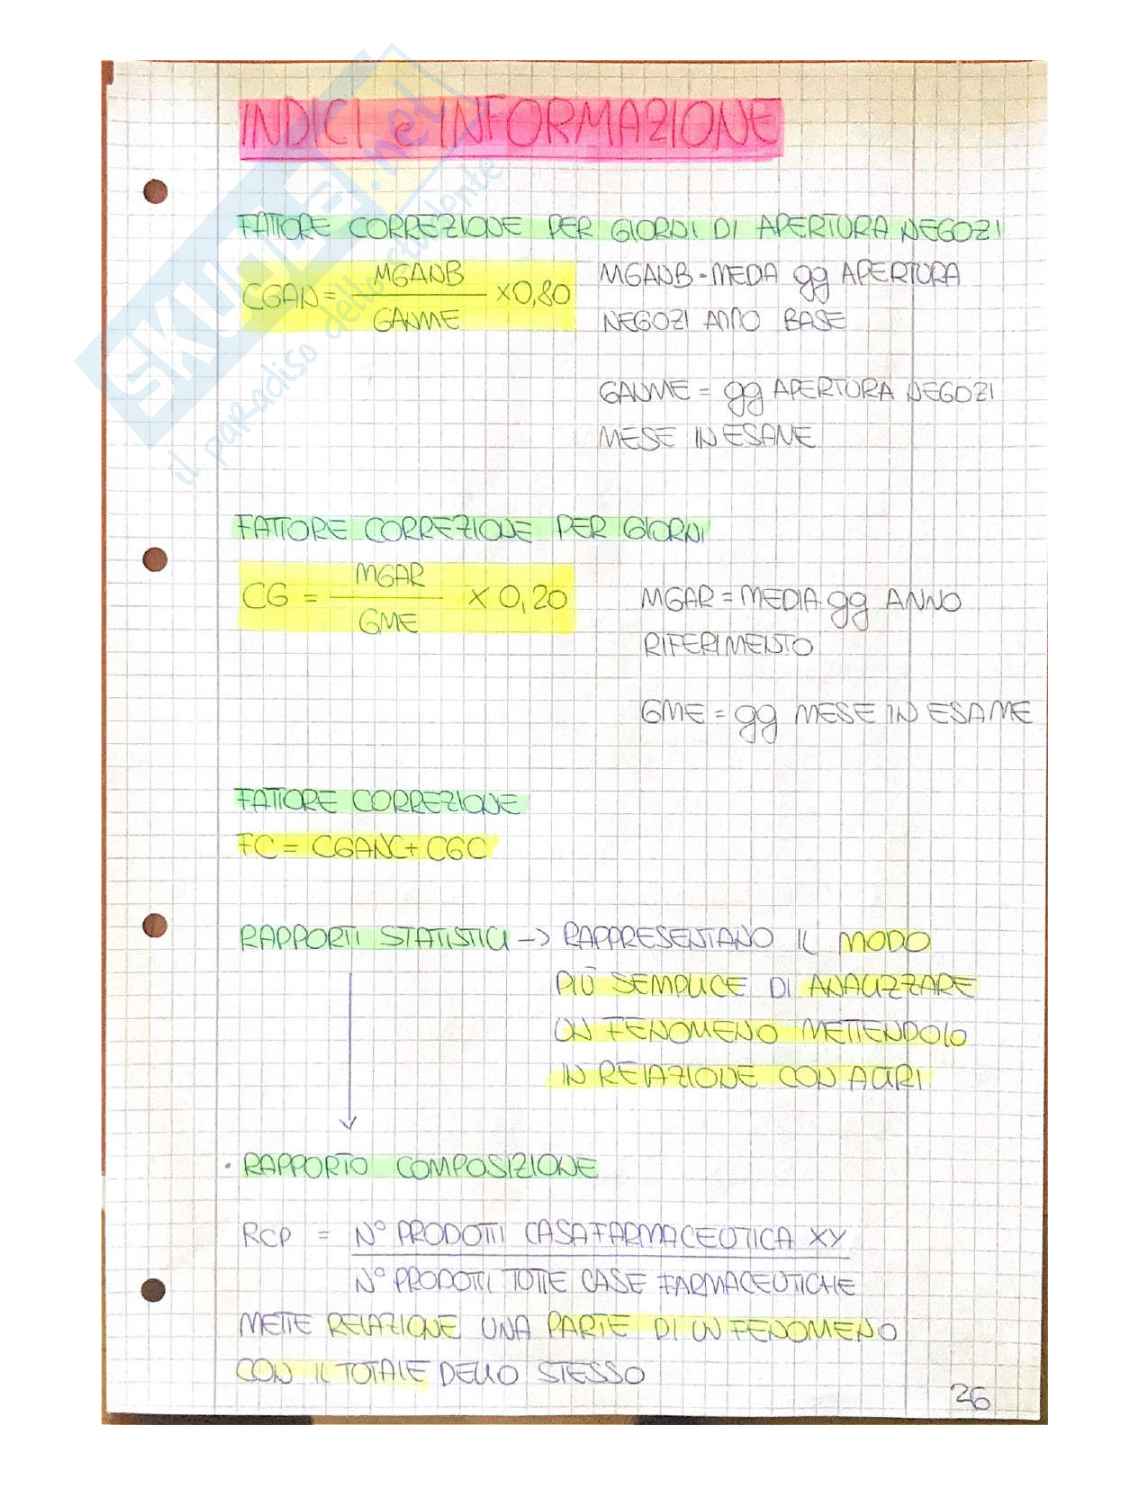 INDICI e INFORMAZIONE
FATTORE CORREZIONE PER GIORNI DI APERTURA NEGOZI
CGAN = MGANB / GANME × 0,80
MGANB = MEDA gg APERTURA
NEGOZI ANNO BASE
GANME = gg APERTURA NEGOZI
MESE IN ESAME
FATTORE CORREZIONE PER GIORNI
CG = MGAR / GME × 0,20
MGAR = MEDIA gg ANNO
RIFERIMENTO
GME = gg MESE IN ESAME
FATTORE CORREZIONE
FC = CGANC + CGC
RAPPORTI STATISTICI -> RAPPRESENTANO IL MODO
PIÙ SEMPLICE DI ANALIZZARE
UN FENOMENO METTENDOLO
IN RELAZIONE CON ALTRI
· RAPPORTO COMPOSIZIONE
RCP = N° PRODOTTI CASA FARMACEUTICA XY
N° PRODOTTI TOTTE CASE FARMACEUTICHE
METTE RELAZIONE UNA PARTE DI UN FENOMENO
CON IL TOTALE DELLO STESSO
26
SKUOLA.net
il paradiso dello studente